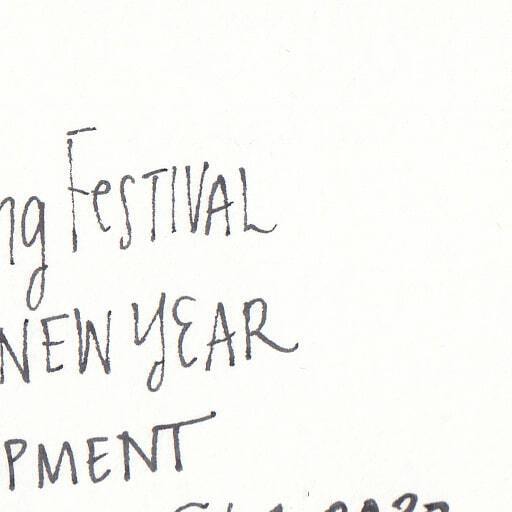 ng FeSTIVAL
NEW YEAR
PMENT